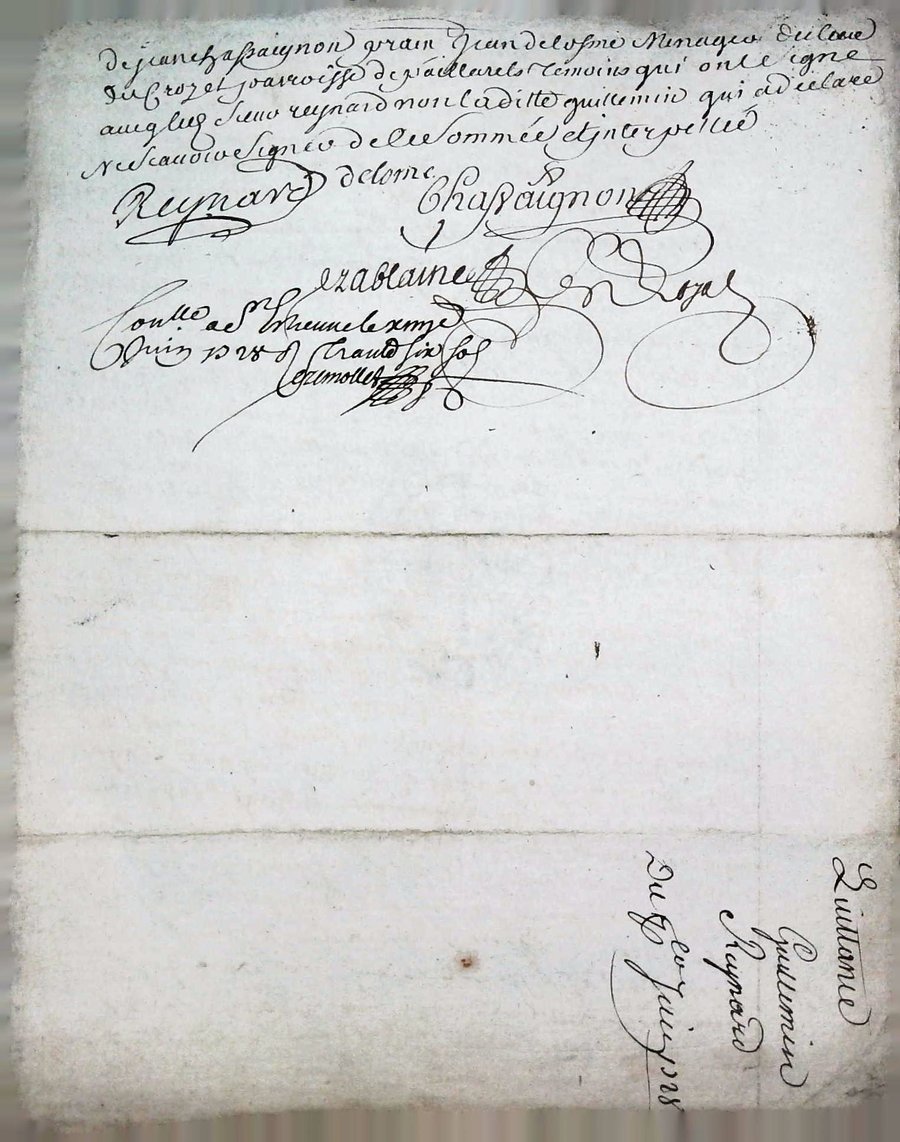 de jean chassaignon vrain jean delosme Menager du lieu
du Crozet parroisse de vaillarels temoins qui ont signe
avec led sieur reynard non laditte guillemin qui a declare
Ne scavoir signer de ce sommée et interpellée
Reynard delome Chassaignon
Royal
Conllé a St Etienne le onze
Juin 1728 R trante six sols
Grimollet
Quittance
Guillemin
Reynard
Du Juin 1728